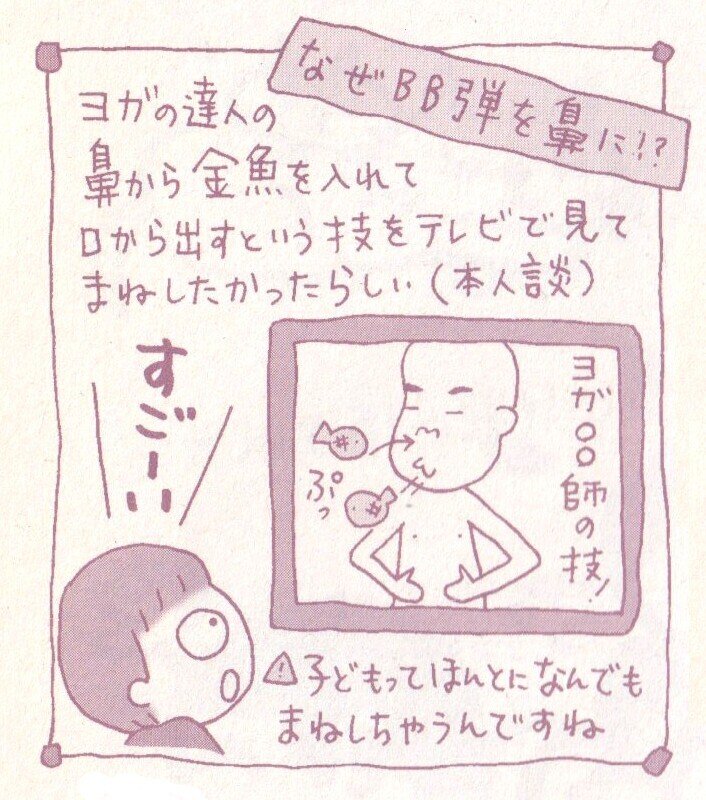 なぜBB弾を鼻に!?
ヨガの達人の
鼻から金魚を入れて
口から出すという技をテレビで見て
まねしたかったらしい(本人談)
すごーい
ヨガ○○師の技!
ぷっ
子どもってほんとになんでも
まねしちゃうんですね